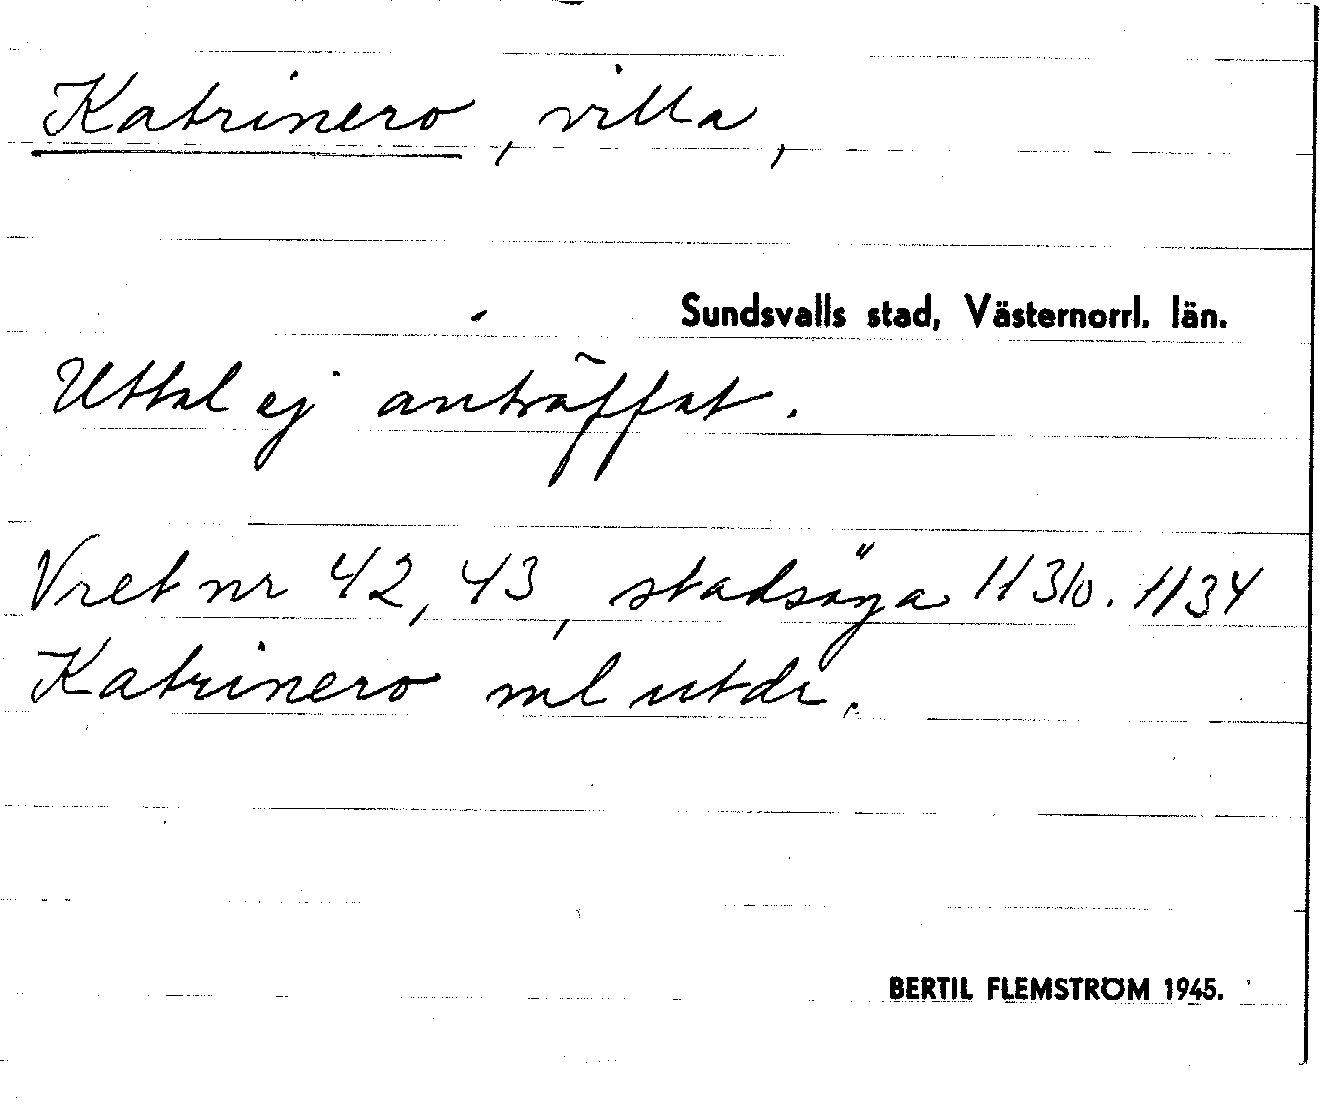 Katrinero, villa,
Sundsvalls stad, Västernorrl. län.
Uttal ej anträffat.
Vret nr 42, 43, stadsäga 1131o. 1134
Katrinero ml utdr.
BERTIL FLEMSTRÖM 1945.